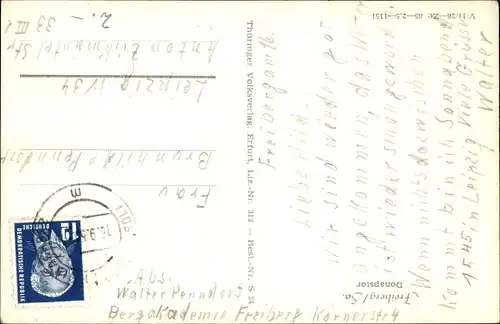 Freiberg/Sa.
Donapstor
V/11/28 — Ze 85 — 2,5 — 1151
Freiberg am 16.
Liebe Hilde!
Wir sind wieder gut
angekommen das Wetter
ist wieder schön geword
Wenn nichts dazwischen
kommt bin ich Sonnabend
15 45 in Leipzig Viele Grüsse
Walter
Thüringer Volksverlag, Erfurt, Liz.-Nr. 312 — Best.-Nr. S 34
Frau
Brunhilde Penndorf
Leipzig N 34
Anton Zickmantel Str
33 III
2. —
12
DEUTSCHE
DEMOKRATISCHE REPUBLIK
Abs.
Walter Penndorf
Bergakademie Freiberg Kornerstr 4